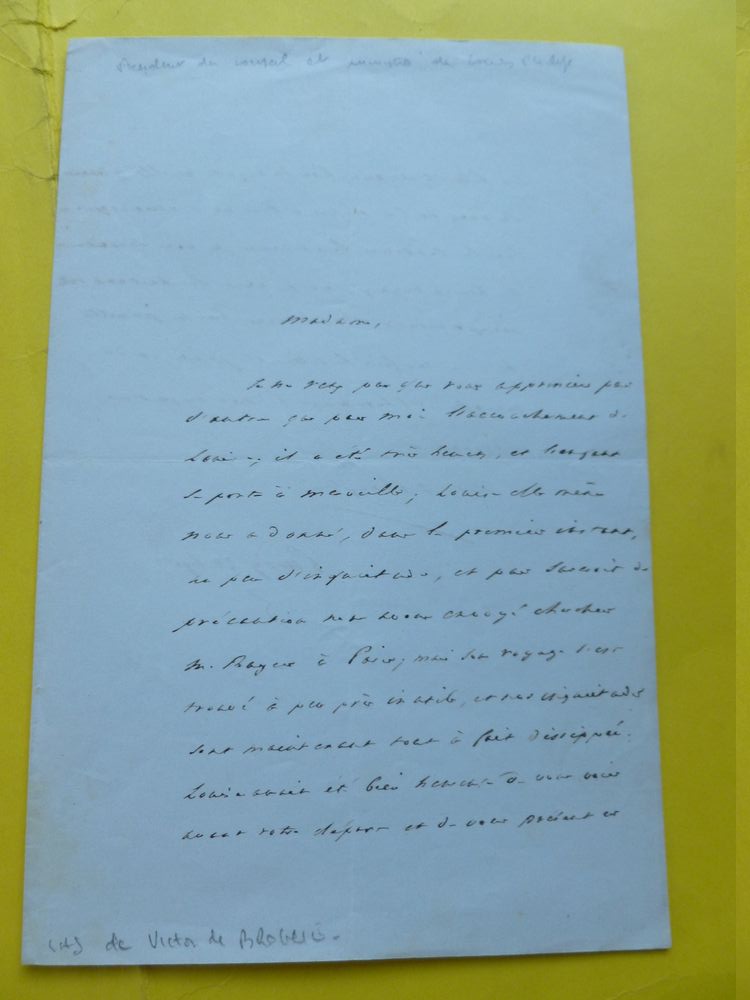 Président du conseil et ministre de Louis Philippe
Madame,
Je ne veux pas que vous appreniez par
d'autre que par moi l'accouchement de
Louise; il a été très heureux, et l'enfant
se porte à merveille; Louise elle même
nous a donné, dans le premier instant,
un peu d'inquiétude, et par surcroit de
précaution nous avons envoyé chercher
M. Rayer à Paris; mais son voyage s'est
trouvé à peu près inutile, et nos inquiétudes
sont maintenant tout à fait dissippées.
Louise aurait été bien heureuse de vous voir
avant votre départ et de vous présenter
LAS de Victor de BROGLIE.